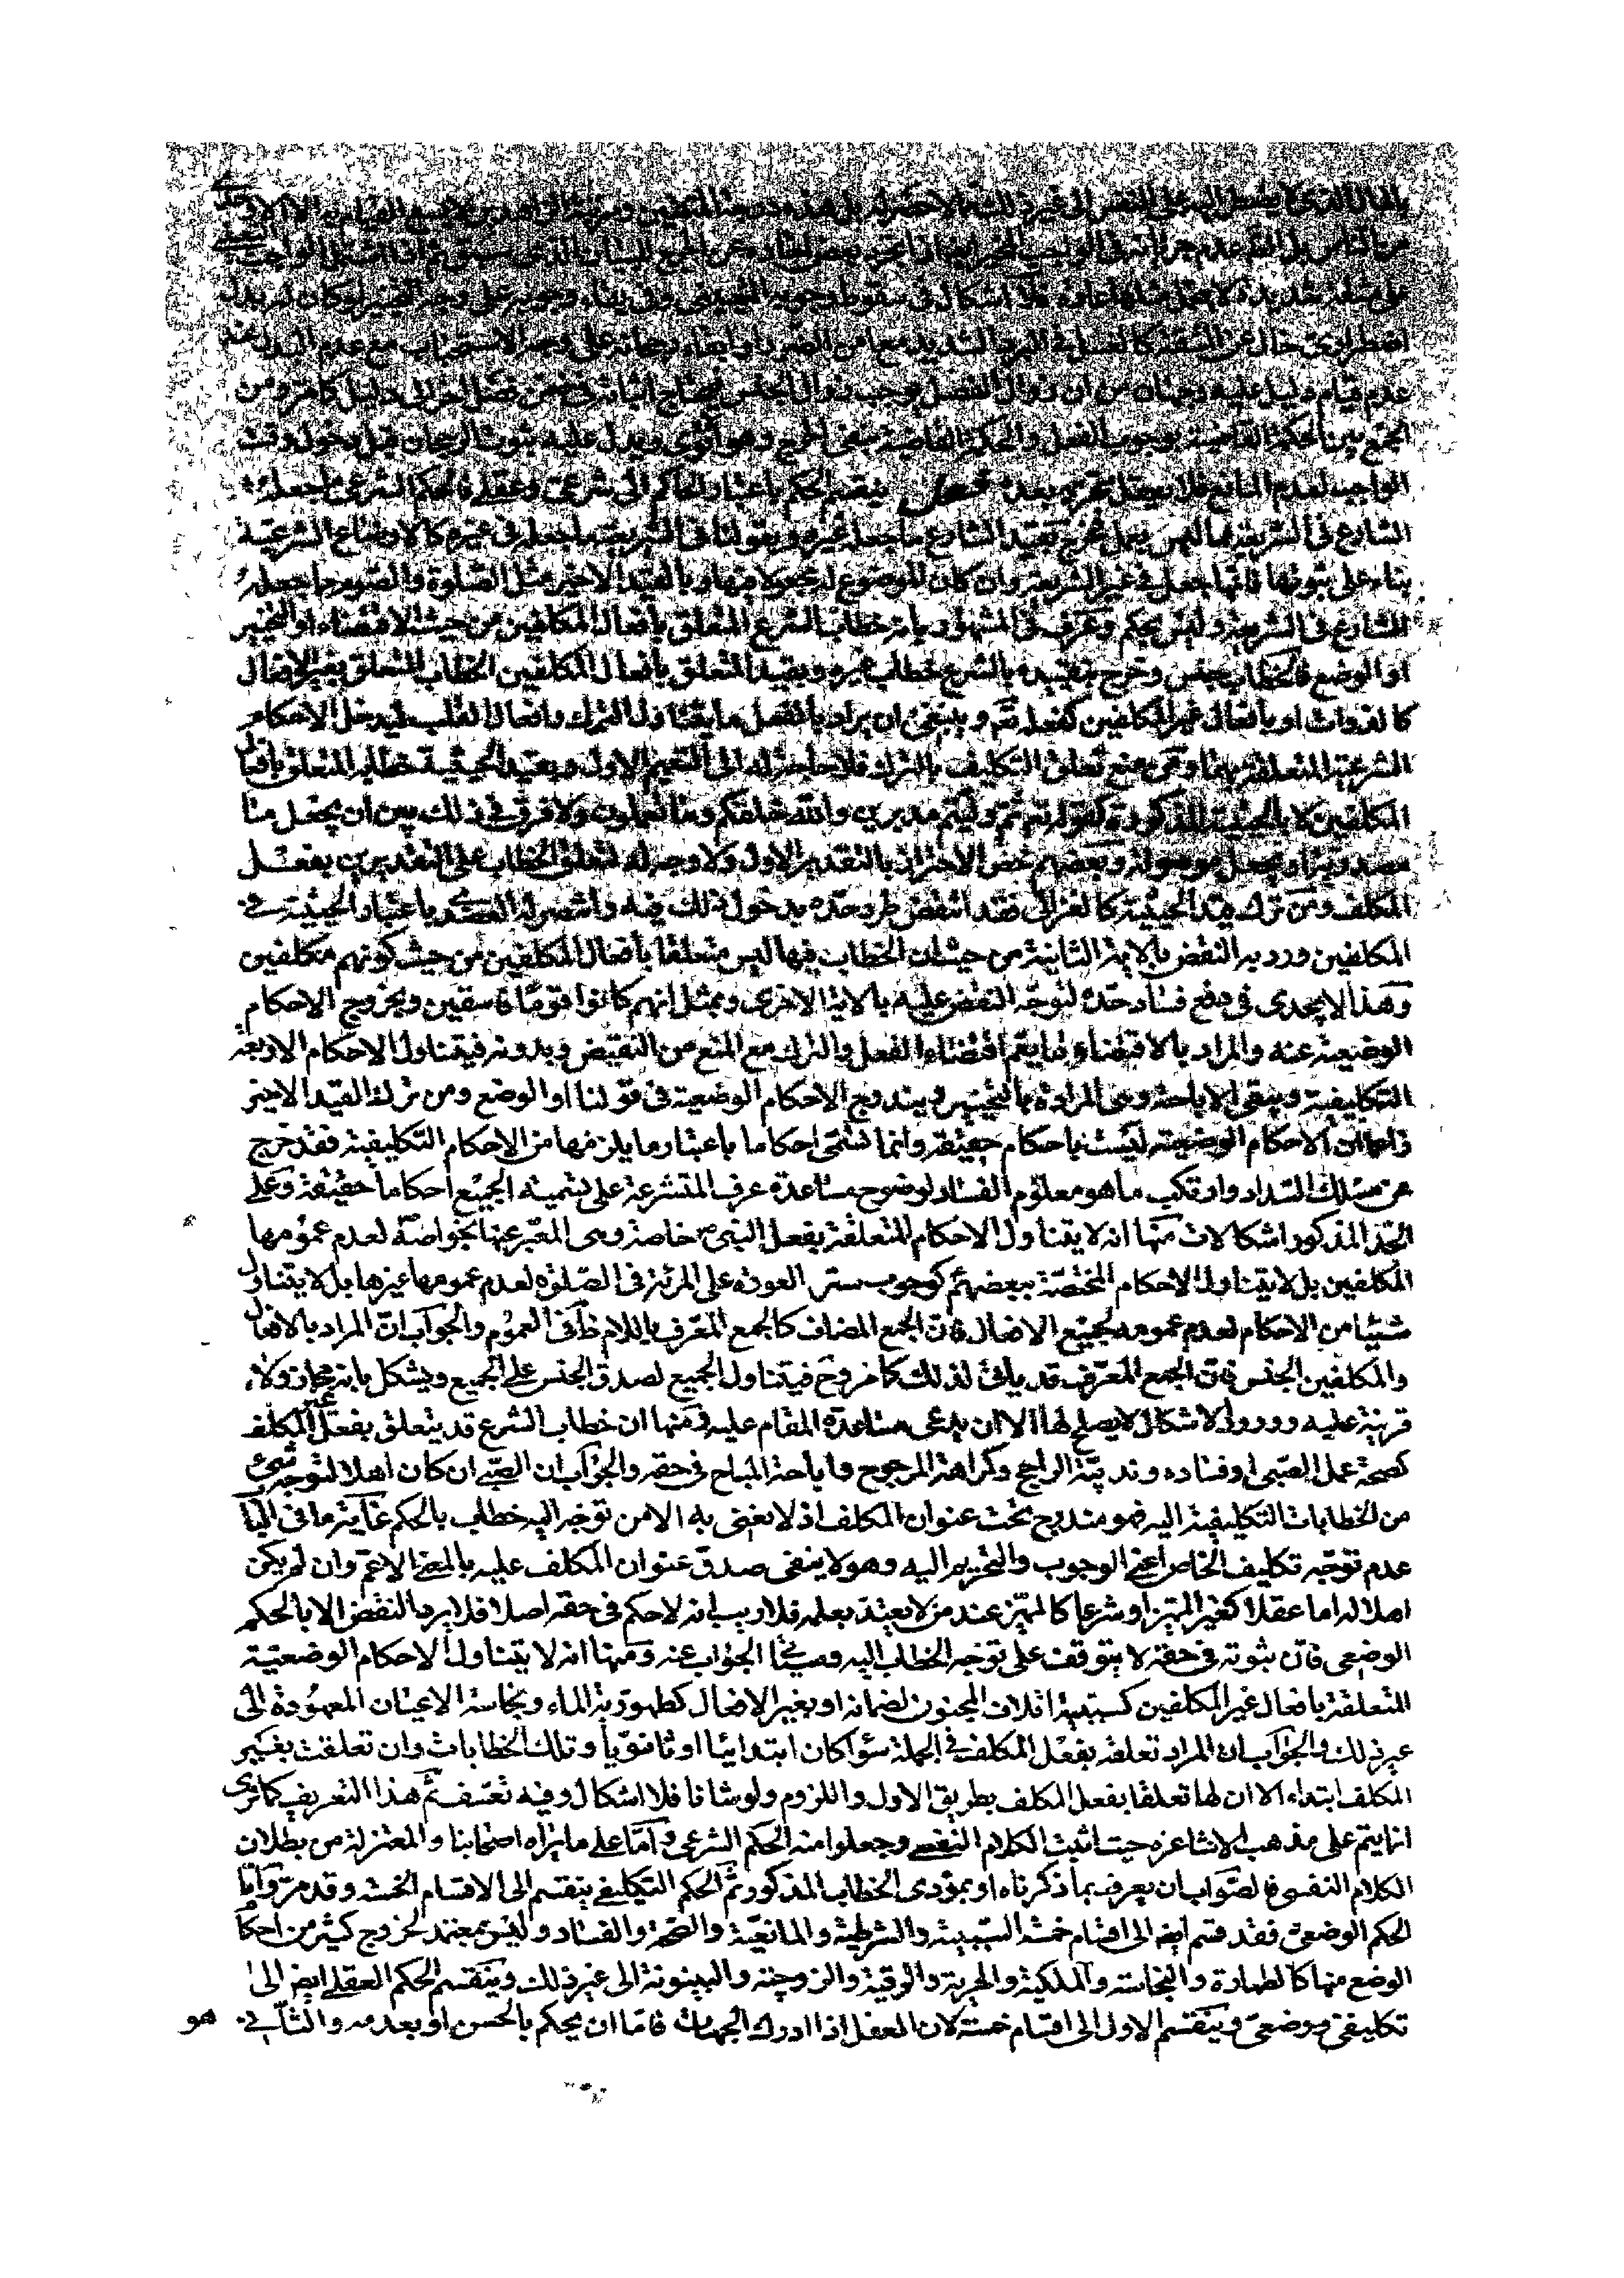 من الناس بل
على مشقة شديدة لا يتحمل مثلها عادة فلا اشكال في سقوط وجوبه التعييني وفي بقاء وجوبه على وجه التخيير لو كان له بدل
اضطراري خال عن المشقة كالغسل في البرد الشديد مع امن الضرر او ابقاء رجحانه على وجه الاستحباب مع عدم البدل
عدم قيام دليل عليه وجهان من ان زوال الفصل يوجب زوال الجنس فيحتاج اثباته في ضمن فصل اخر الى دليل كما مر ومن
الجمع بين الحكمة القاضية بوجوب الفعل والحكمة القاضية بنفي الحرج وهو اقوى ويدل عليه ثبوت الرجحان قبل دخول وقت
الواجب لعدم المانع فلا يعقل تحريمه بعده فصل ينقسم الحكم باعتبار الحاكم الى شرعي وعقلي فالحكم الشرعي ما جعله
الشارع في الشريعة مما ليس بعمل فخرج بقيد الشارع ما جعله غيره وبقولنا في الشريعة ما جعله في غيره كالاوضاع الشرعية
بناء على ثبوتها فانها جعل في غير الشريعة وان كان الموضوع له مجعولا فيها وبالقيد الاخير مثل الصلوة والصوم مما جعله
الشارع في الشريعة وليس بحكم وعرف في المشهور بانه خطاب الشرع المتعلق بافعال المكلفين من حيث الاقتضاء او التخيير
او الوضع فالخطاب جنس وخرج بتقييده بالشرع خطاب غيره وبقيد المتعلق بافعال المكلفين الخطاب المتعلق بغير الافعال
كالذوات او بافعال غير المكلفين كفعله تعم وينبغي ان يراد بالفعل ما يتناول الترك وافعال القلب ليدخل الاحكام
الشرعية المتعلقة بهما ومن منع تعلق التكليف بالترك فلا حاجة له الى التعميم الاول وبقيد الحيثية خطابه المتعلق بافعال
المكلفين لا بالحيثية المذكورة كقوله تعم ثم وليتم مدبرين والله خلقكم وما تعملون ولا فرق في ذلك بين ان يجعل ما
مصدرية او يجعل موصولة وبعضهم خص الاحتراز بالتقدير الاول ولا وجه له لتعلق الخطاب على التقديرين بفعل
المكلف ومن ترك قيد الحيثية كالغزالي فقد انتقض طرد حده بدخول ذلك فيه وانتصر له العضدي باعتبار الحيثية في
المكلفين ورد به النقض بالاية الثانية من حيث ان الخطاب فيها ليس متعلقا بافعال المكلفين من حيث كونهم مكلفين
وهذا لا يجدي في دفع فساد حده لتوجه النقض عليه بالاية الاخرى وبمثل انهم كانوا قوما فاسقين وبخروج الاحكام
الوضعية عنه والمراد بالاقتضاء ما يعم اقتضاء الفعل والترك مع المنع من النقيض وبدونه فيتناول الاحكام الاربعة
التكليفية ويبقى الاباحة وهي المرادة بالتخيير ويندرج الاحكام الوضعية في قولنا او الوضع ومن ترك القيد الاخير
زاعما ان الاحكام الوضعية ليست باحكام حقيقة وانما تسمى احكاما باعتبار ما يلزمها من الاحكام التكليفية فقد خرج
عن مسلك السداد وارتكب ما هو معلوم الفساد لوضوح مساعدة عرف المتشرعة على تسمية الجميع احكاما حقيقة وعلى
الحد المذكور اشكالات منها انه لا يتناول الاحكام المتعلقة بفعل النبي ص خاصة وهي المعبر عنها بخواصه لعدم عمومها
المكلفين بل لا يتناول الاحكام المختصة ببعضهم كوجوب ستر العورة على المرئة في الصلوة لعدم عمومها غيرها بل لا يتناول
شيئا من الاحكام لعدم عمومه لجميع الافعال فان الجمع المضاف كالجمع المعرف باللام ظ في العموم والجواب ان المراد بالافعال
والمكلفين الجنس فان الجمع المعرف قد ياتي لذلك كما مر وح فيتناول الجميع لصدق الجنس على الجميع ويشكل بانه مجاز ولا
قرينة عليه وورود الاشكال لا يصلح لها الا ان يدعى مساعدة المقام عليه ومنها ان خطاب الشرع قد يتعلق بفعل غير المكلف
كصحة عمل الصبي او فساده وندبية الراجح وكراهة المرجوح واباحة المباح في حقه والجواب ان الصبي ان كان اهلا لتوجه شئ
من الخطابات التكليفية اليه فهو مندرج تحت عنوان المكلف اذ لا نعني به الا من توجه اليه خطاب بالحكم غاية ما في الباب
عدم توجه تكليف الخاص اعني الوجوب والتحريم اليه وهو لا ينفي صدق عنوان المكلف عليه بالمعنى الاعم وان لم يكن
اهلا له اما عقلا كغير المميز او شرعا كالمميز عند من لا يعتد بعلمه فلا ريب انه لا حكم في حقه اصلا فلا يرد النقض الا بالحكم
الوضعي فان ثبوته في حقه لا يتوقف على توجه الخطاب اليه وسيجئ الجواب عنه ومنها انه لا يتناول الاحكام الوضعية
المتعلقة بافعال غير المكلفين كسببية اتلاف المجنون لضمانه او بغير الافعال كطهورية الماء ونجاسة الاعيان المعهودة الى
غير ذلك والجواب ان المراد تعلقه بفعل المكلف في الجملة سواء كان ابتدائيا او ثانويا وتلك الخطابات وان تعلقت بغير
المكلف ابتداء الا ان لها تعلقا بفعل المكلف بطريق الاول واللزوم ولو شانا فلا اشكال وفيه تعسف ثم هذا التعريف كما ترى
انما يتم على مذهب الاشاعرة حيث اثبت الكلام النفسي وجعلوا منه الحكم الشرعي واما على ما يراه اصحابنا والمعتزلة من بطلان
الكلام النفسي فالصواب ان يعرف بما ذكرناه او بمؤدى الخطاب المذكور ثم الحكم التكليفي ينقسم الى الاقسام الخمسة وقد مر واما
الحكم الوضعي فقد قسم ايضا الى اقسام خمسة السببية والشرطية والمانعية والصحة والفساد وليس بمعتمد لخروج كثير من احكام
الوضع منها كالطهارة والنجاسة والملكية والحرية والرقية والزوجية والبينونة الى غير ذلك وينقسم الحكم العقلي ايضا الى
تكليفي ووضعي وينقسم الاول الى اقسام خمسة لان العقل اذا ادرك الجهات فاما ان يحكم بالحسن او بعدمه والثاني
هو